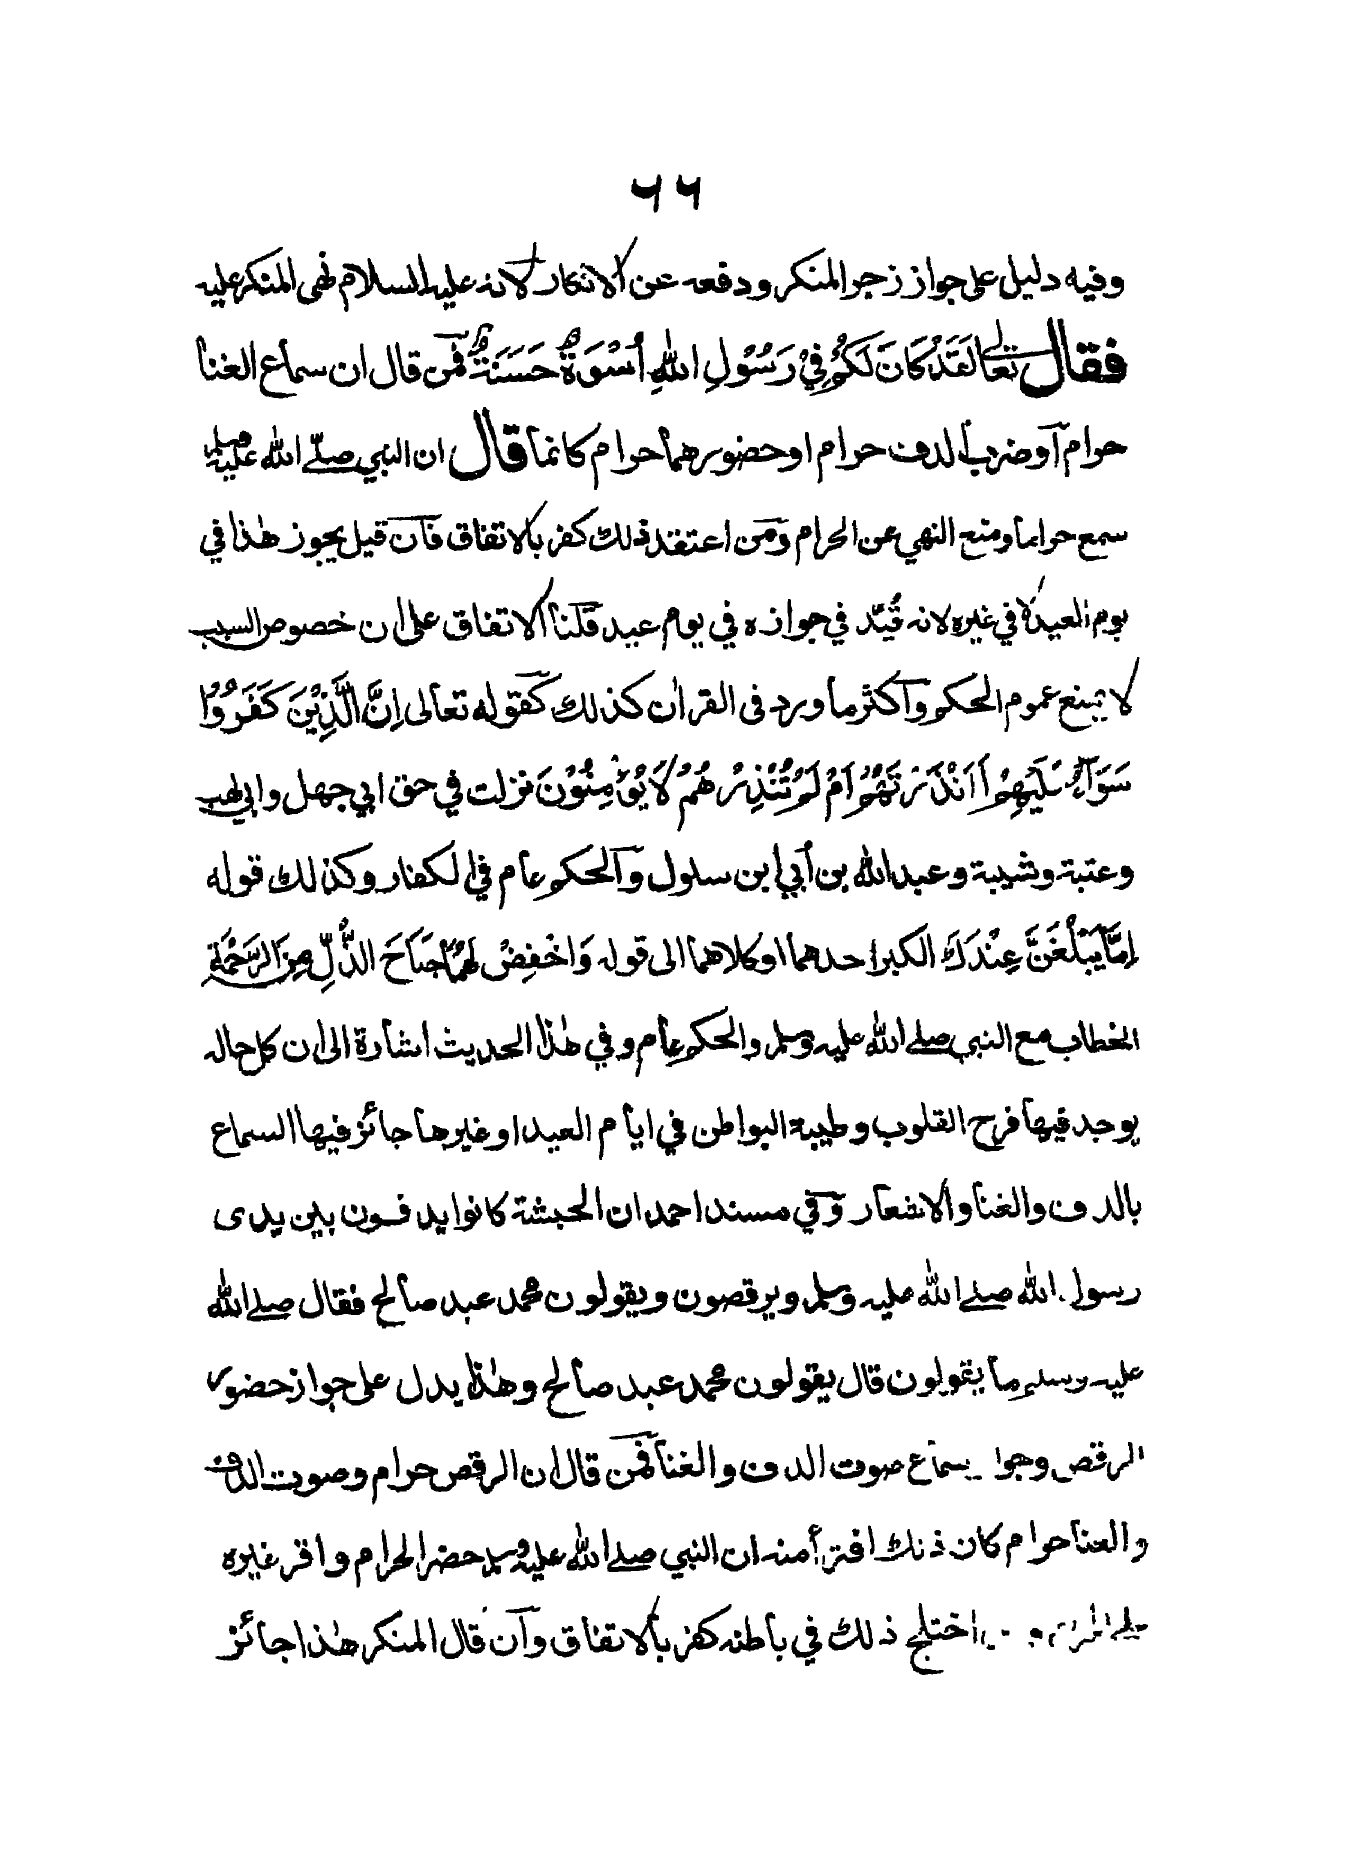 ٦٦
وفيه دليل على جواز زجر المنكر ودفعه عن الانكار لانه عليه السلام نهى المنكر عليه
فقال تعالى لَقَدْ كَانَ لَكُمْ فِيْ رَسُوْلِ اللهِ اُسْوَةٌ حَسَنَةٌ فمن قال ان سماع الغنا
حرام اوضرب الدف حرام اوحضورهما حرام كانما قال ان النبي صلے الله عليه وسلم
سمع حراما ومنع النهي عن الحرام ومن اعتقد ذلك كفر بالاتفاق فان قيل يجوز هٰذا في
يوم العيد لا في غيره لانه قُيِّد في جوازه في يوم عيد قلنا الاتفاق على ان خصوص السبب
لا يمنع عموم الحكم واكثر ما ورد فى القراٰن كذلك كقوله تعالى اِنَّ الَّذِيْنَ كَفَرُوْا
سَوَآءٌ عَلَيْهِمْ أَاَنْذَرْتَهُمْ اَمْ لَمْ تُنْذِرْ هُمْ لَا يُؤْمِنُوْنَ نزلت في حق ابي جهل وابي لهب
وعتبة وشيبة وعبد الله بن أبي ابن سلول والحكم عام في الكفار وكذلك قوله
اِمَّا يَبْلُغَنَّ عِنْدَكَ الكبر احدهما اوكلاهما الى قوله وَاخْفِضْ لَهُمَا جَنَاحَ الذُّلِّ مِنَ الرَّحْمَةِ
الخطاب مع النبي صلے الله عليه وسلم والحكم عام وفي هٰذا الحديث اشارة الى ان كل حاله
يوجد فيها فرح القلوب وطيبة البواطن في ايام العيد او غيرها جائز فيها السماع
بالدف والغنا والاشعار وفي مسند احمد ان الحبشة كانوا يدفون بين يدى
رسول الله صلے الله عليه وسلم ويرقصون ويقولون محمد عبد صالح فقال صلے الله
عليه وسلم ما يقولون قال يقولون محمد عبد صالح وهٰذا يدل على جواز حضور
الرقص وجواز سماع صوت الدف والغنا فمن قال ان الرقص حرام وصوت الدف
والغنا حرام كان ذلك افترأ منه ان النبي صلے الله عليه وسلم حضر الحرام واقر غيره
على الحرام اختلج ذلك في باطنه كفر بالاتفاق وان قال المنكر هٰذا جائز